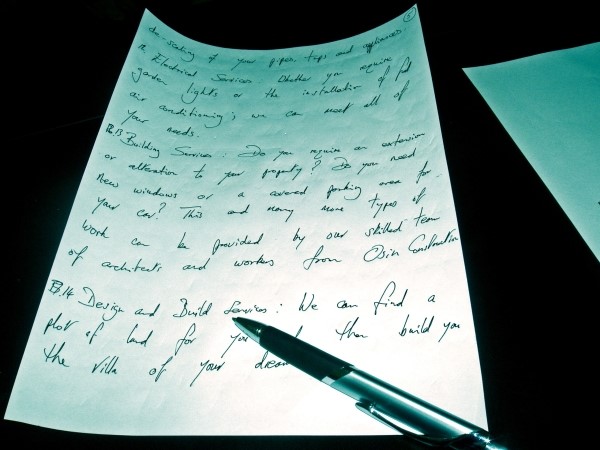 5
de-scaling of your pipes, taps and appliances
Electrical Services. Whether you require
garden lights or the installation of full
air conditioning's we can meet all of
your needs.
B.13 Building Services: Do you require an extension
or alteration to your property? Do you need
new windows or a covered parking area for
your car? This and many more types of
work can be provided by our skilled team
of architects and workers from Osin Construction
B.14 Design and Build Services: We can find a
plot of land for you then build you
the villa of your dream